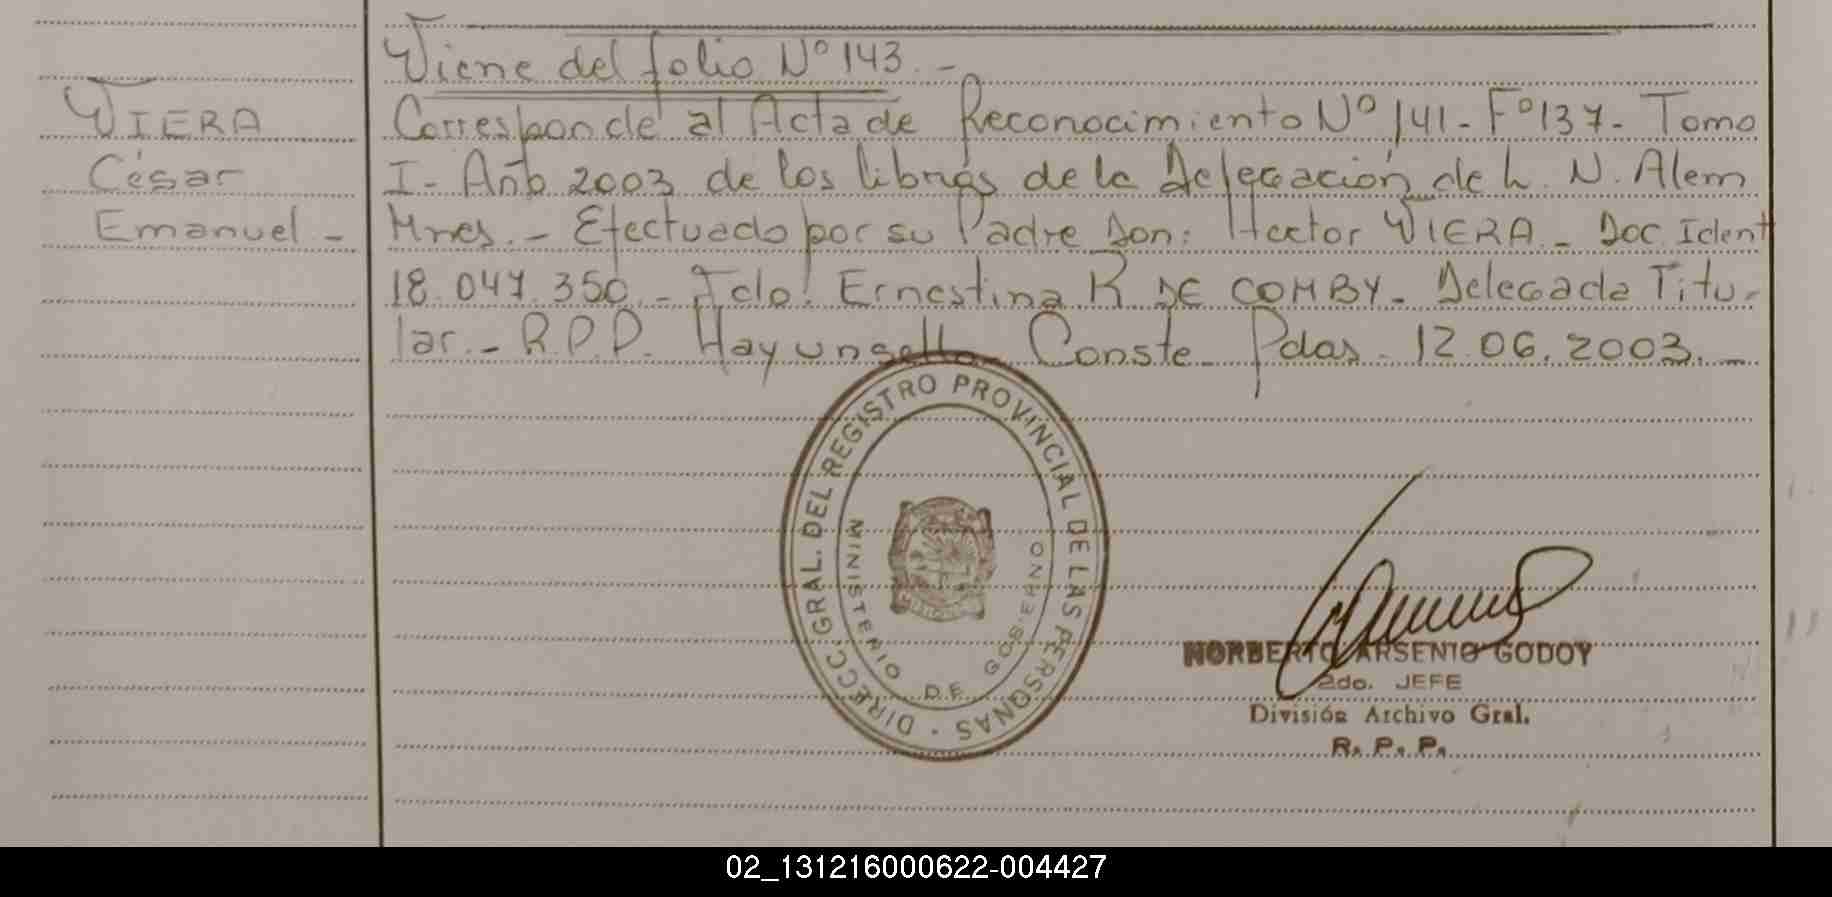 Viene del folio Nº 143.-
VIERA
Corresponde al Acta de Reconocimiento Nº 141- Fº137- Tomo
César
I- Año 2003 de los libros de la Delegación de L. N. Alem
Emanuel-
Mnes.- Efectuado por su Padre Don: Hector VIERA- Doc. Ident
18.047.350.- Fdo: Ernestina R DE COMBY- Delegada Titu-
lar.- R.P.P. Hay un sello Conste Pdas- 12.06.2003.-
DIRECC. GRAL. DEL REGISTRO PROVINCIAL DE LAS PERSONAS
MINISTERIO DE GOBIERNO
NORBERTO ARSENIO GODOY
2do. JEFE
División Archivo Gral.
R. P. P.
02_131216000622-004427